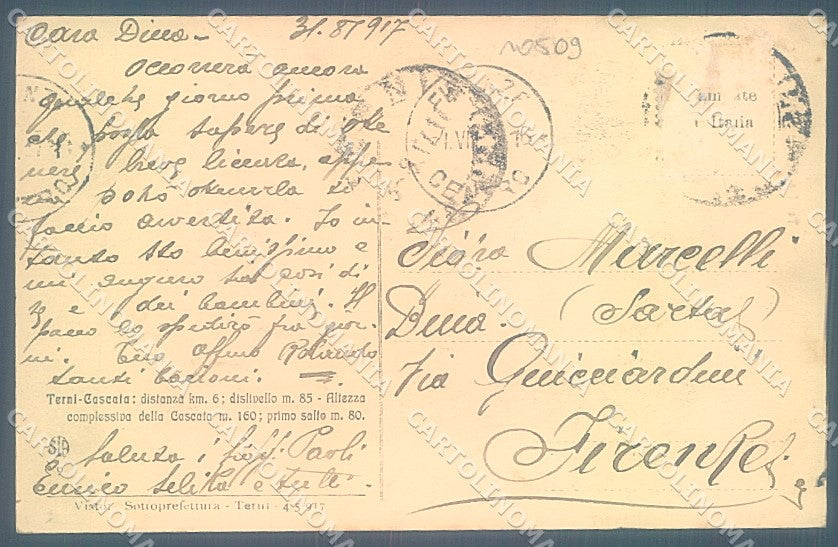 Cara Dina - 31.8.917
Occorrerà ancora
qualche giorno prima
che possa sapere di
breve licenza, appe-
na potrò otenerla ti
faccio avvertita. Io in-
tanto sto benissimo e
mi auguro così di
te e dei bambini. Il
pacco lo spedirò fra gior-
ni. Tuo affmo
tanti bacioni.
Terni-Cascata: distanza km. 6; dislivello m. 85 - Altezza
complessiva della Cascata m. 160; primo salto m. 80.
Saluta i Paoli
Enrico e tutti.
Visto: Sottoprefettura - Terni - 4-8-917
20509
Italia
Sig.ra Marcelli
Dina. (Sarta)
Via Guicciardini
Firenze
CARTOLINOMANIA